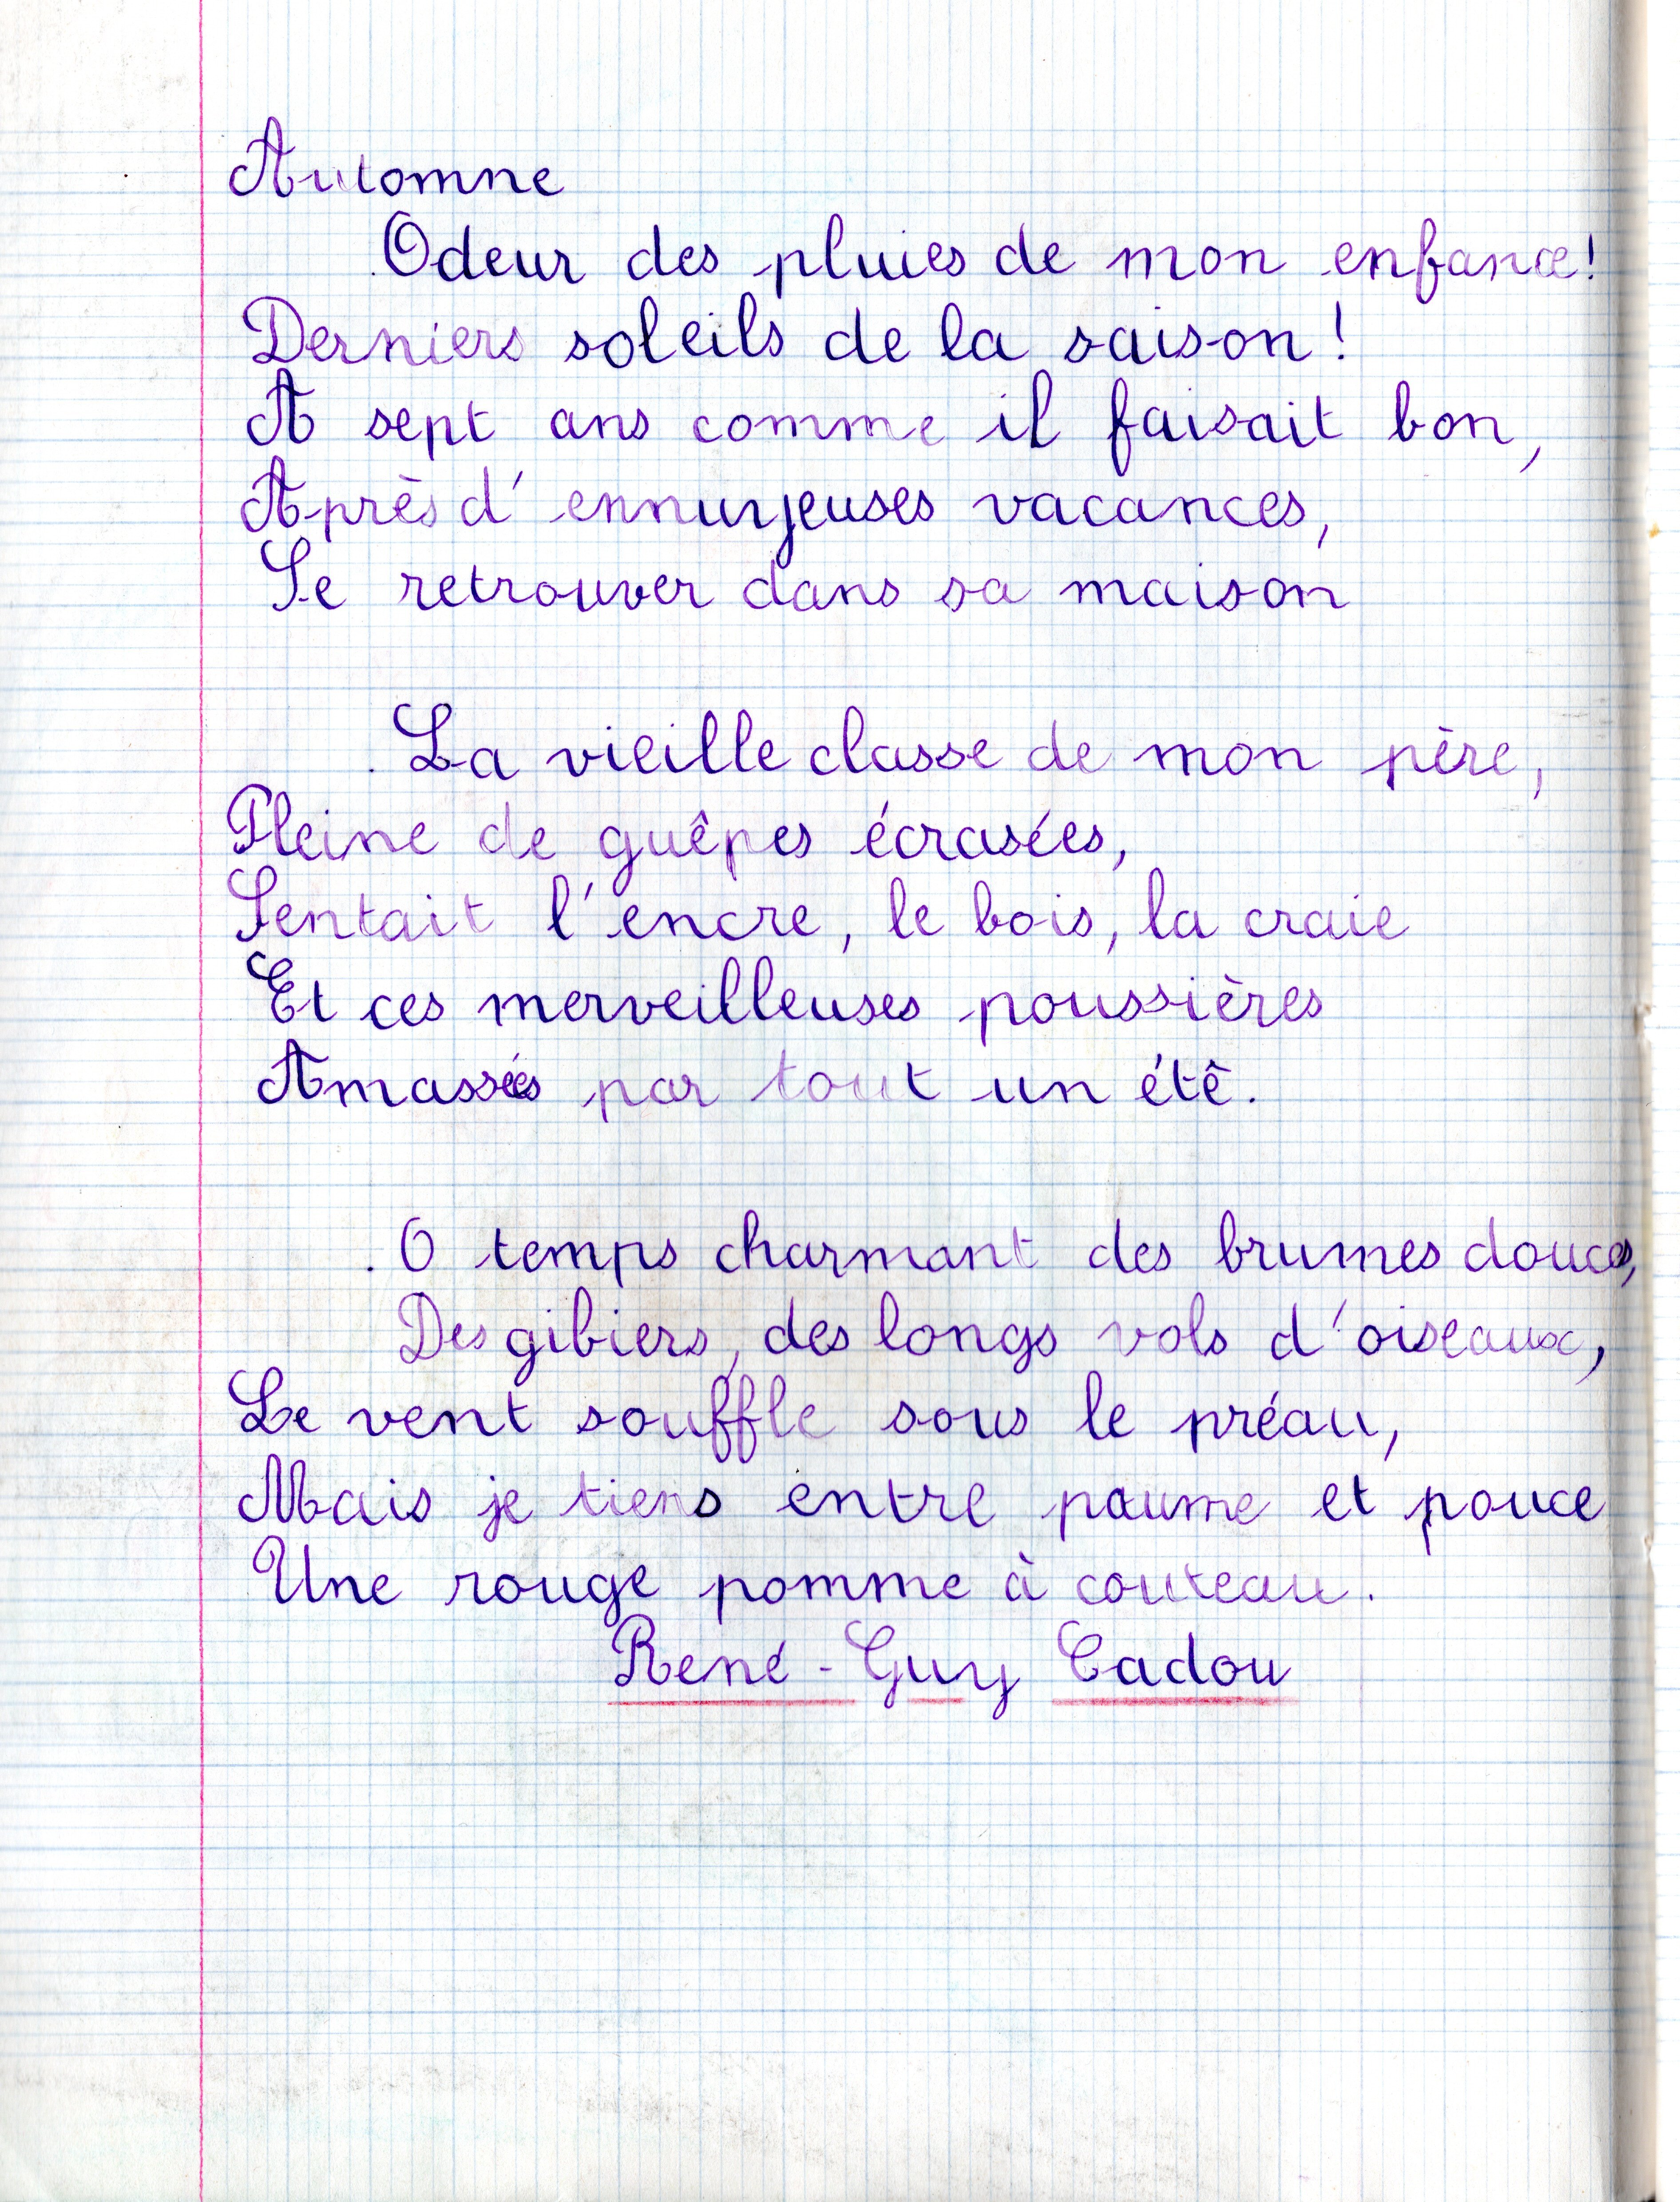 Automne
Odeur des pluies de mon enfance!
Derniers soleils de la saison!
A sept ans comme il faisait bon,
Après d'ennuyeuses vacances,
Se retrouver dans sa maison
La vieille classe de mon père,
Pleine de guêpes écrasées,
Sentait l'encre, le bois, la craie
Et ces merveilleuses poussières
Amassées par tout un été.
O temps charmant des brumes douces,
Des gibiers, des longs vols d'oiseaux,
Le vent souffle sous le préau,
Mais je tiens entre paume et pouce
Une rouge pomme à couteau.
René-Guy Cadou